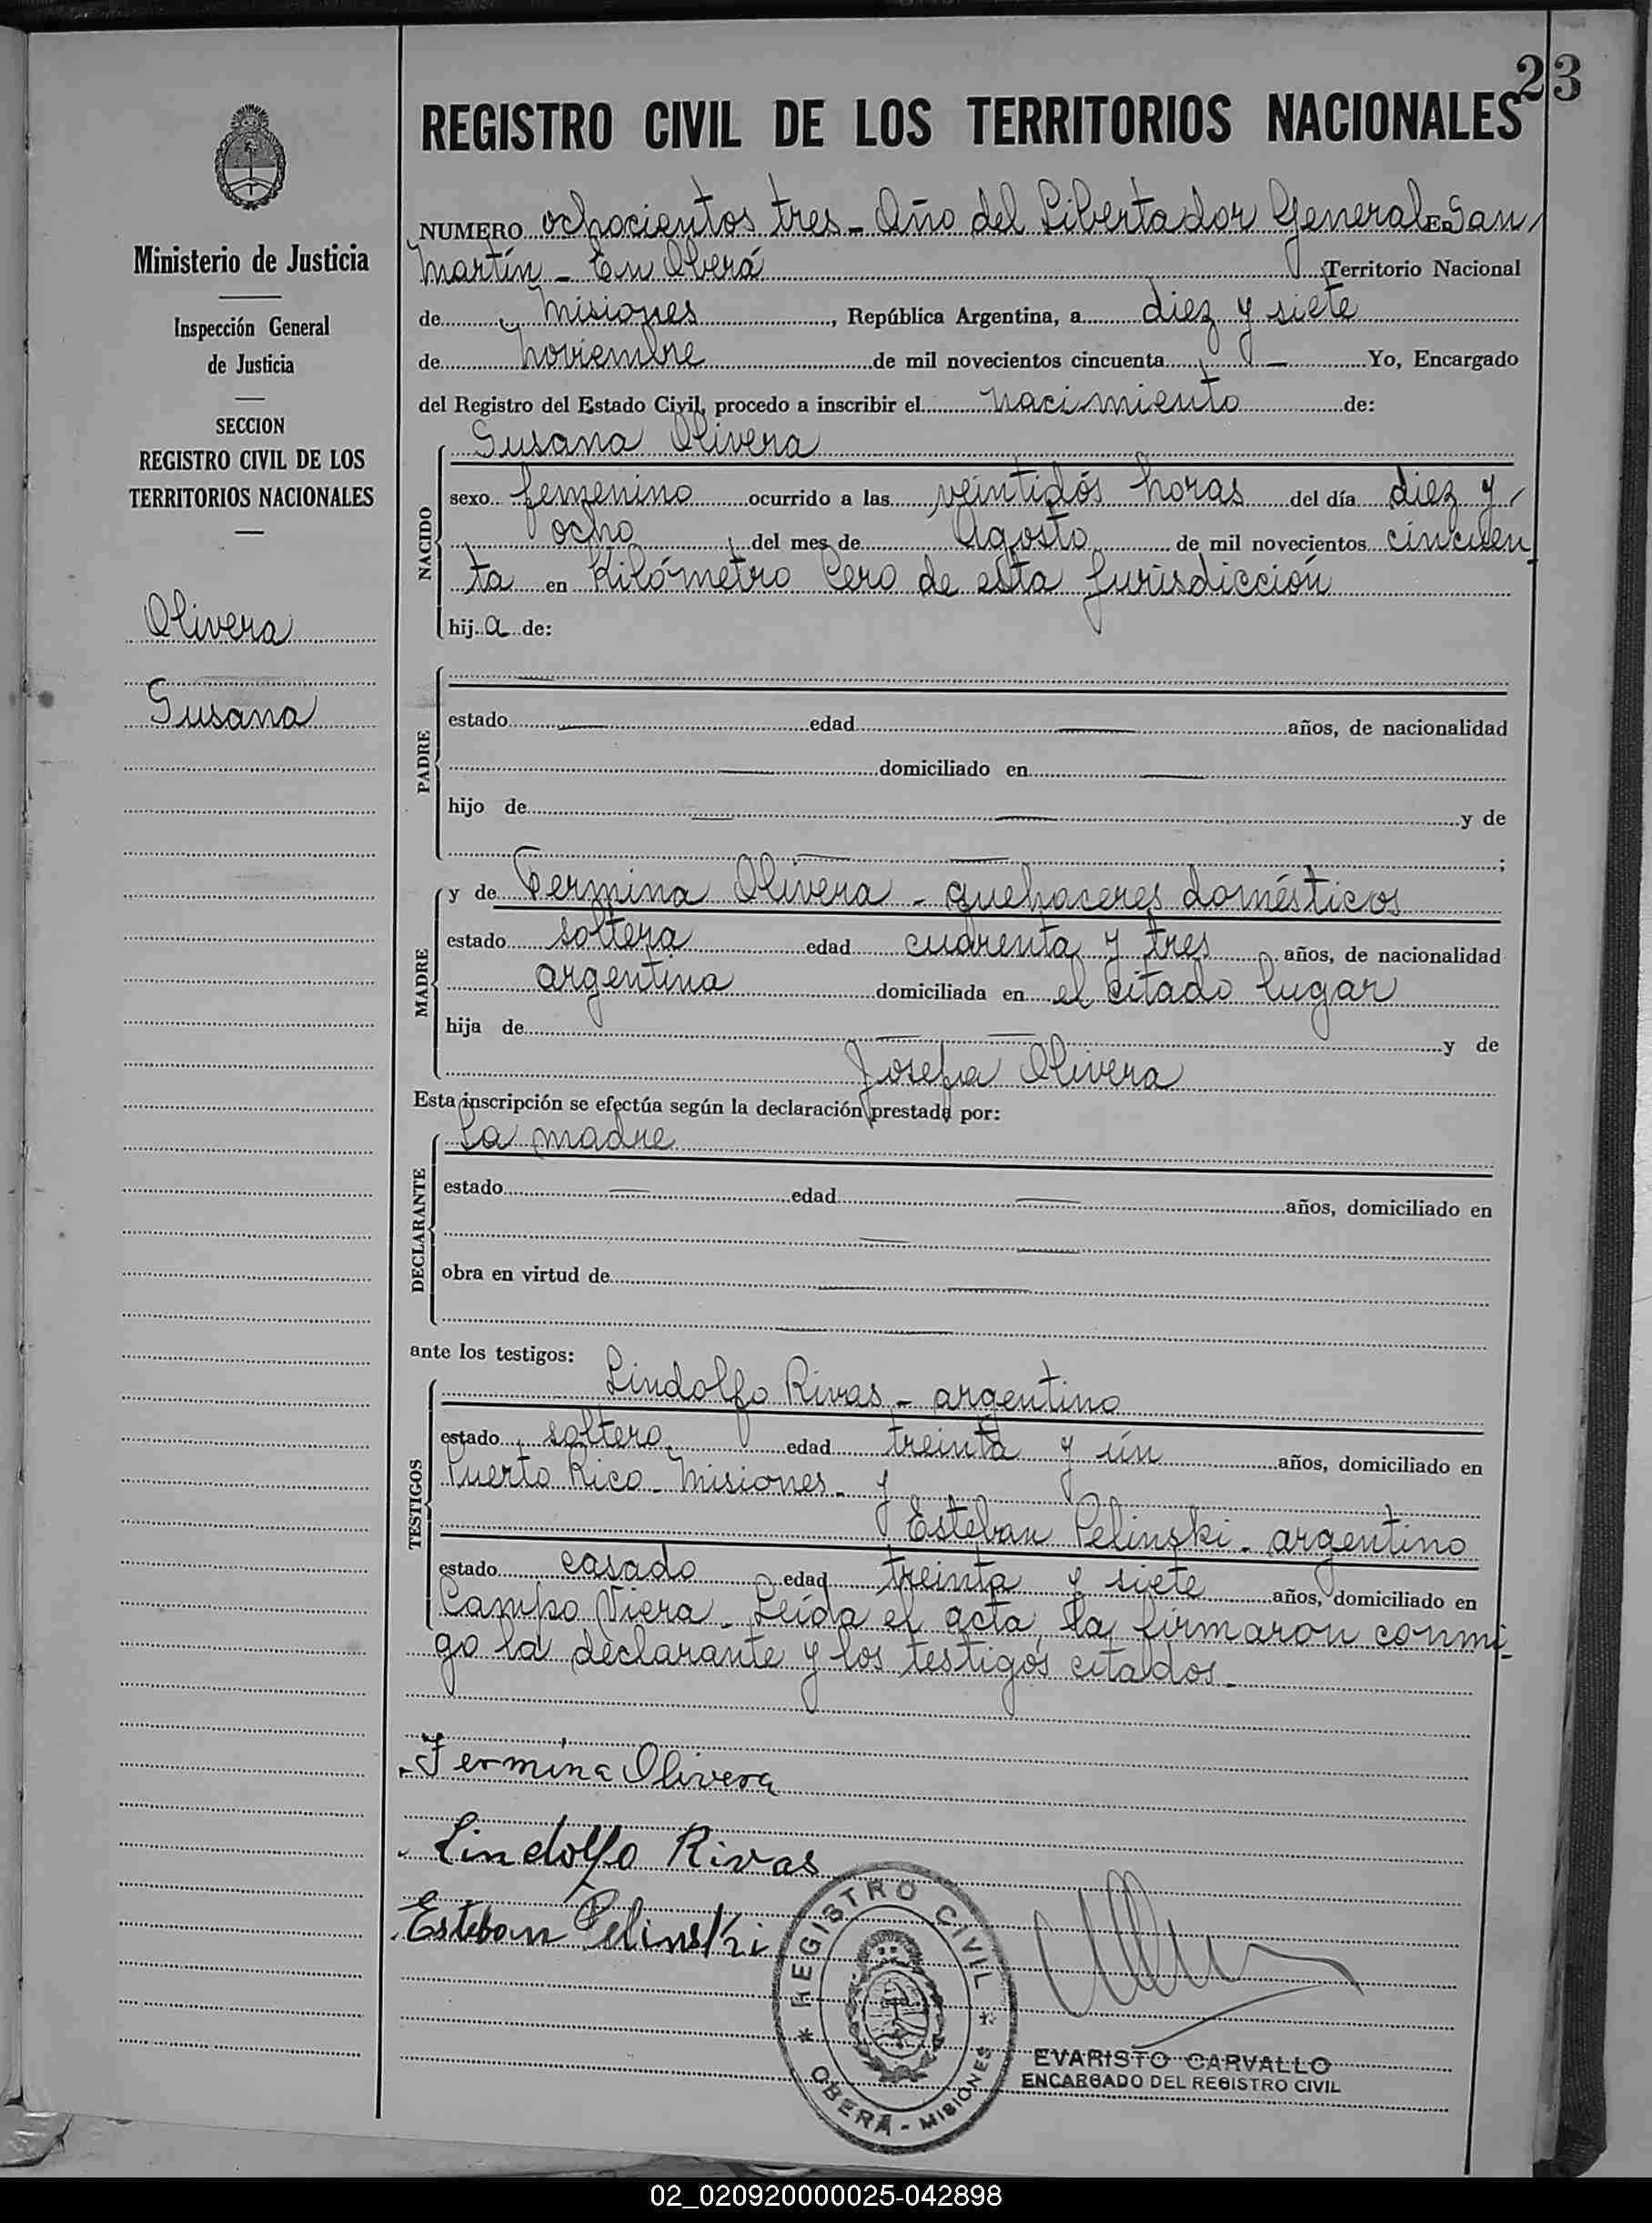 23
REGISTRO CIVIL DE LOS TERRITORIOS NACIONALES
Ministerio de Justicia
Inspección General
de Justicia
SECCION
REGISTRO CIVIL DE LOS
TERRITORIOS NACIONALES
Olivera
Susana
NUMERO ochocientos tres - Año del Libertador General San
Martín - En Oberá Territorio Nacional
de Misiones, República Argentina, a diez y siete
de Noviembre de mil novecientos cincuenta — Yo, Encargado
del Registro del Estado Civil, procedo a inscribir el nacimiento de:
NACIDO
Susana Olivera
sexo femenino ocurrido a las veintidós horas del día diez y
ocho del mes de Agosto de mil novecientos cincuen
ta en Kilómetro Cero de esta Jurisdicción
hija de:
PADRE
estado — edad — años, de nacionalidad
— domiciliado en —
hijo de — — y de
— — ;
MADRE
y de Fermina Olivera - quehaceres domésticos
estado soltera edad cuarenta y tres años, de nacionalidad
argentina domiciliada en el citado lugar
hija de — — y de
Josefa Olivera
Esta inscripción se efectúa según la declaración prestada por:
DECLARANTE
La madre
estado — edad — años, domiciliado en
— —
obra en virtud de — —
— —
ante los testigos:
TESTIGOS
Lindolfo Rivas - argentino
estado soltero edad treinta y ún años, domiciliado en
Puerto Rico - Misiones - y
Esteban Pelinski - argentino
estado casado edad treinta y siete años, domiciliado en
Campo Viera - Leída el acta, la firmaron conmi
go la declarante y los testigos citados -
Fermina Olivera
Lindolfo Rivas
Esteban Pelinski
* REGISTRO CIVIL *
OBERÁ - MISIONES
EVARISTO CARVALLO
ENCARGADO DEL REGISTRO CIVIL
02_020920000025-042898